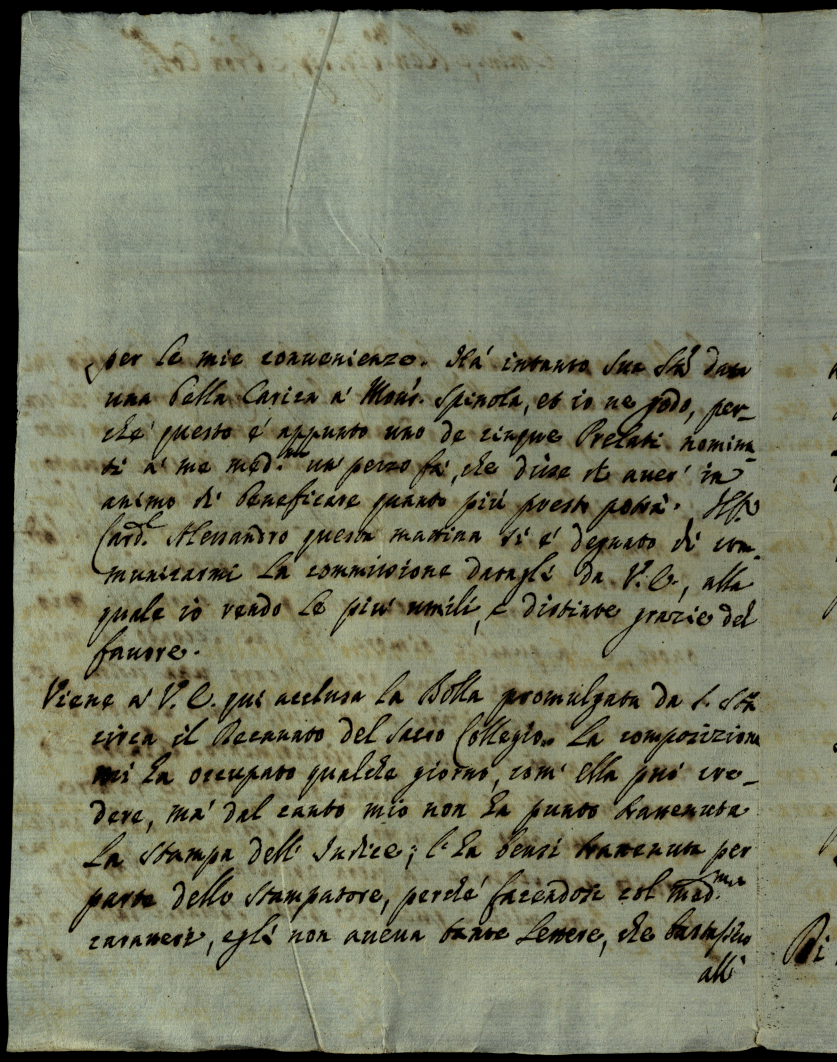 per le mie convenienze. Há intanto Sua Stà data
una bella Carica à Monr. Spinola, et io ne godo, per=
ché questo é appunto uno de cinque Prelati nomina=
ti à me med.mo un pezzo fá, che disse di aver' in
animo di beneficare quanto più presto potrà. Il Sr
Card.l Alessandro questa mattina si é degnato di com=
municarmi la commissione datagli da V.E., alla
quale io rendo le più umili, e distinte grazie del
favore.
Viene à V.E. qui acclusa la Bolla promulgata da S. Stà
circa il Decanato del Sacro Collegio. La composizione
mi ha occupato qualche giorno, com' ella può cre=
dere, mà dal canto mio non ha punto trattenuta
la Stampa dell' Indice; l' ha bensi trattenuta per
parte dello Stampatore, perché facendosi col med.mo
carattere, egli non aveva tante Lettere, che bastassero
all'
Di